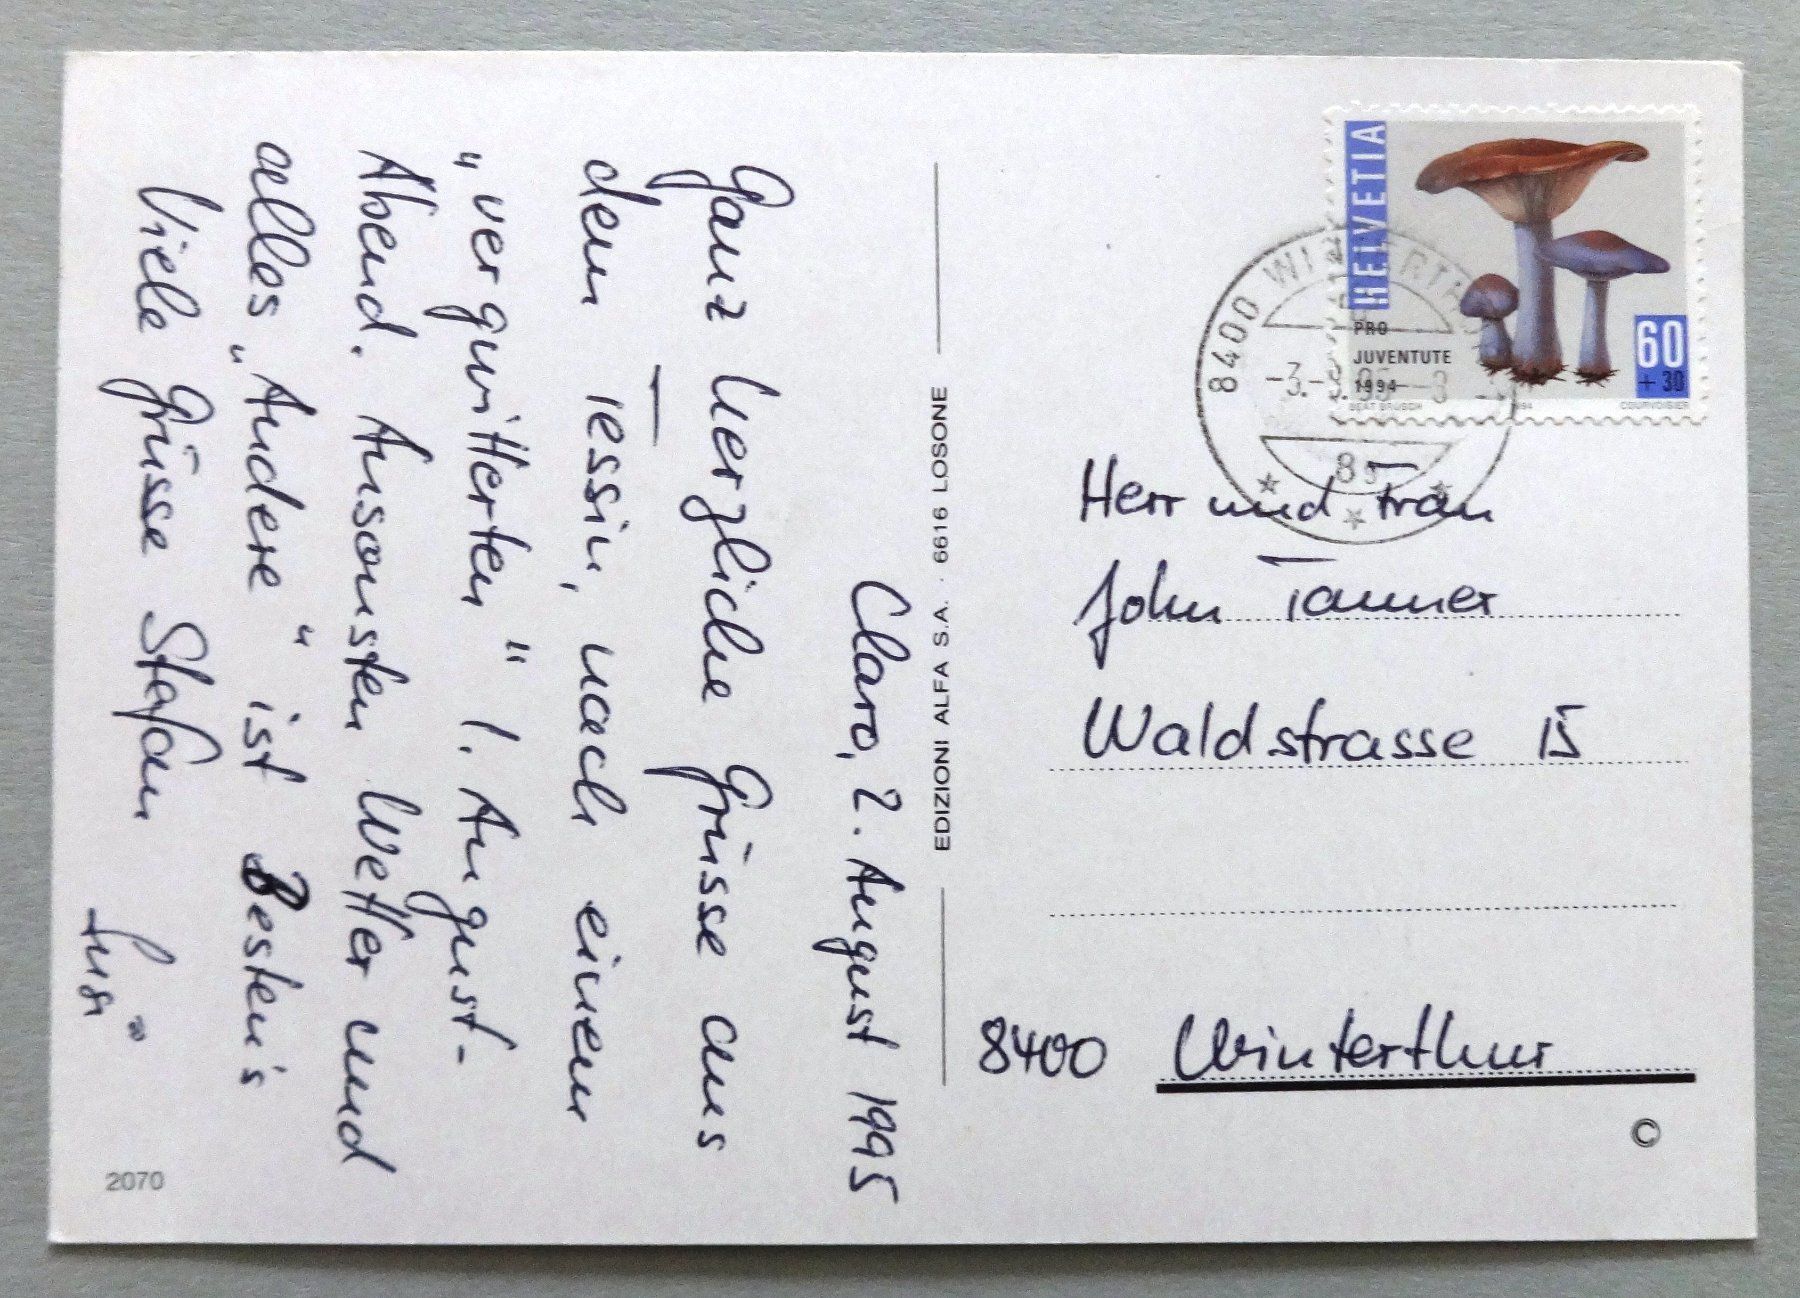 Claro, 2. August 1995
Ganz herzliche Grüsse aus
dem Tessin, nach einem
"vergwitterten" 1. August-
Abend. Ansonsten Wetter und
alles "Andere" ist Besten's
Viele Grüsse Stefan
Susi
2070
EDIZIONI ALFA S.A. · 6616 LOSONE
HELVETIA
PRO
JUVENTUTE
1994
60
+30
BEAT BRÜSCH 1994 COURVOISIER
8400 WINTERTHUR
Herr und Frau
John Tanner
Waldstrasse 15
8400 Winterthur
©